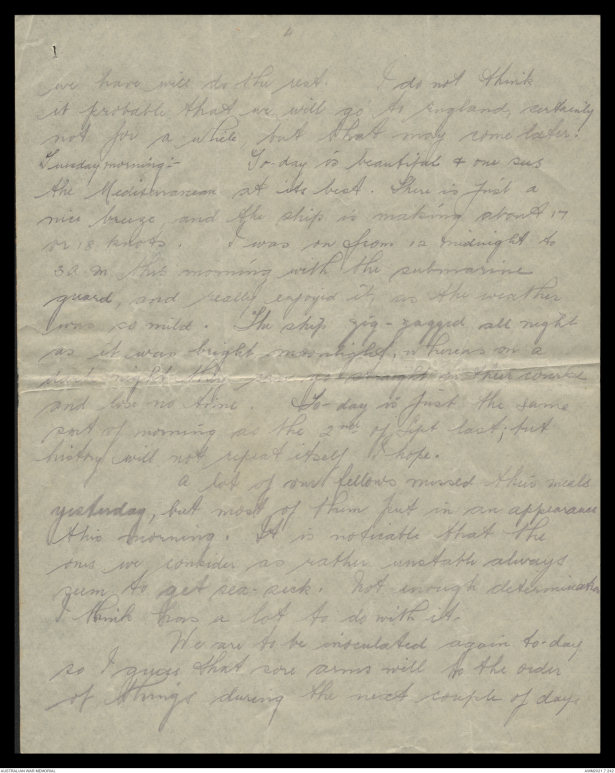 4
1
we have will do the rest. I do not think
it probable that we will go to England, certainly
not for a while, but that may come later.
Tuesday morning:- To-day is beautiful & one sees
the Mediterranean at its best. There is just a
nice breeze and the ship is making about 17
or 18 knots. I was on from 12 midnight to
3 a.m this morning with the submarine
guard, and really enjoyed it, as the weather
was so mild. The ship zig-zagged all night
as it was bright moonlight, whereas on a
dark night they just go straight on their course
and lose no time. To-day is just the same
sort of morning as the 2nd of Sept last, but
history will not repeat itself I hope.
A lot of our fellows missed their meals
yesterday, but most of them put in an appearance
this morning. It is noticable that the
ones we consider as rather unstable always
seem to get sea-sick. Not enough determination
I think has a lot to do with it.
We are to be inoculated again to-day
so I guess that sore arms will be the order
of things during the next couple of days
AUSTRALIAN WAR MEMORIAL